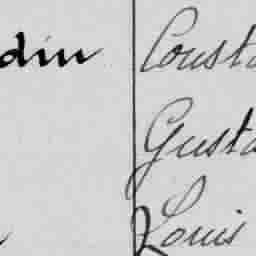 din Const
Gusta
Louis